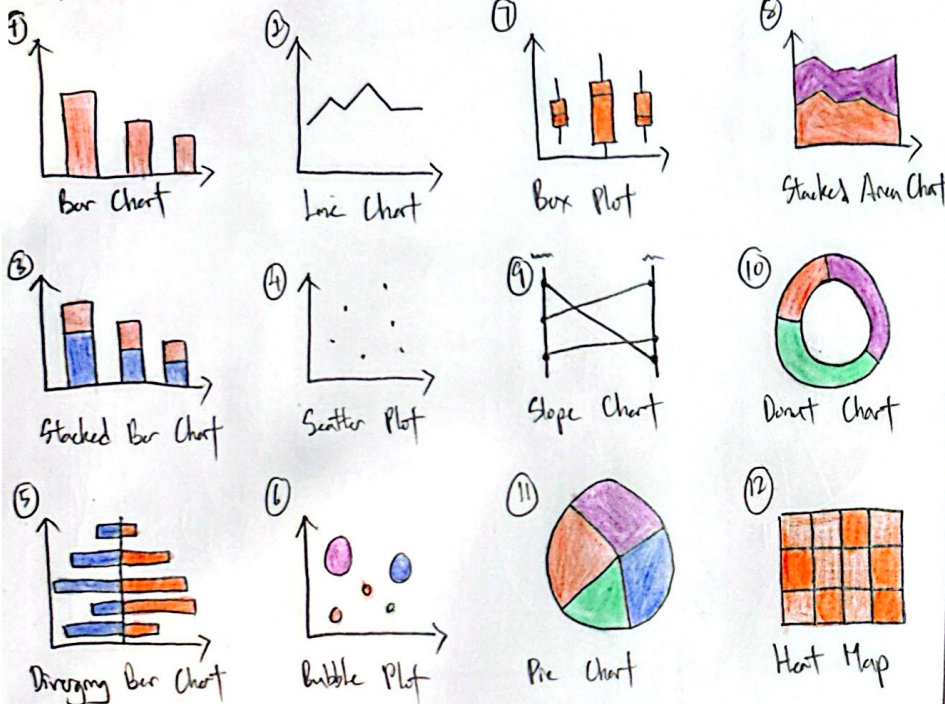 1
Bar Chart
2
Line Chart
7
Box Plot
8
Stacked Area Chart
3
Stacked Bar Chart
4
Scatter Plot
9
Slope Chart
10
Donut Chart
5
Diverging Bar Chart
6
Bubble Plot
11
Pie Chart
12
Heat Map